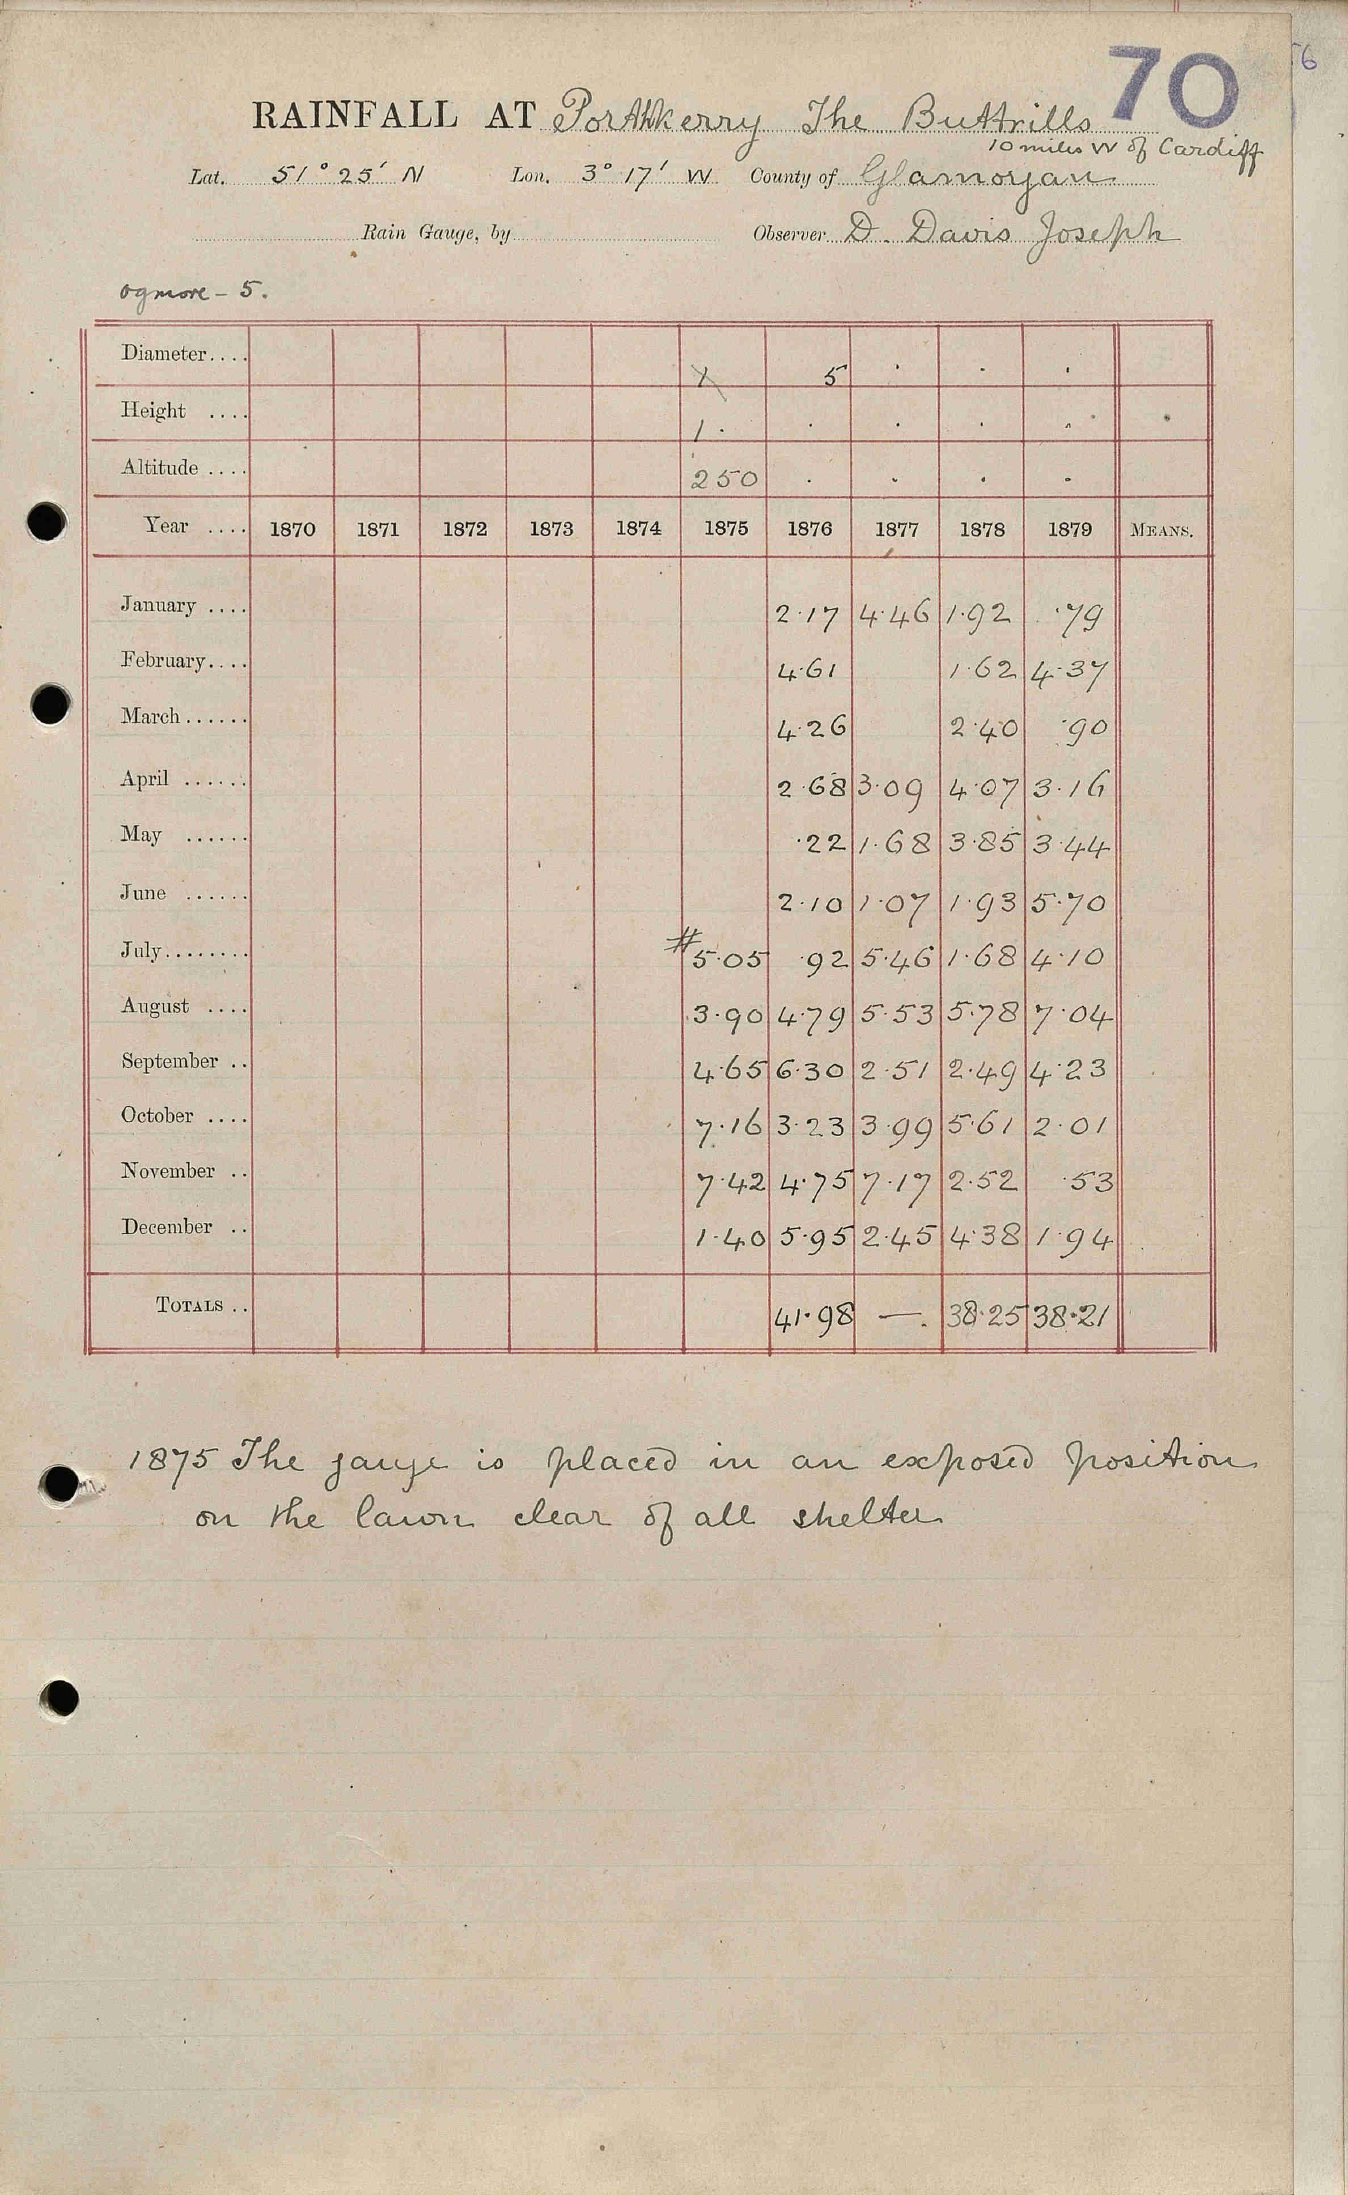 70
6
RAINFALL AT Porthkerry The Buttrills
10 miles W of Cardiff
Lat. 51° 25' N Lon. 3° 17' W County of Glamorgan
Rain Gauge, by Observer D. Davis Joseph
ogmore - 5.
Diameter.... 1 5 · · ·
Height .... 1 · · · · ·
Altitude .... 250 · · · ·
Year .... 1870 1871 1872 1873 1874 1875 1876 1877 1878 1879 MEANS.
January .... 2·17 4·46 1·92 ·79
February.... 4·61 1·62 4·37
March...... 4·26 2·40 ·90
April ...... 2·68 3·09 4·07 3·16
May ...... ·22 1·68 3·85 3·44
June ...... 2·10 1·07 1·93 5·70
July........ # 5·05 ·92 5·46 1·68 4·10
August .... 3·90 4·79 5·53 5·78 7·04
September .. 4·65 6·30 2·51 2·49 4·23
October .... 7·16 3·23 3·99 5·61 2·01
November .. 7·42 4·75 7·17 2·52 ·53
December .. 1·40 5·95 2·45 4·38 1·94
TOTALS .. 41·98 —. 38·25 38·21
1875 The gauge is placed in an exposed position
on the lawn clear of all shelter